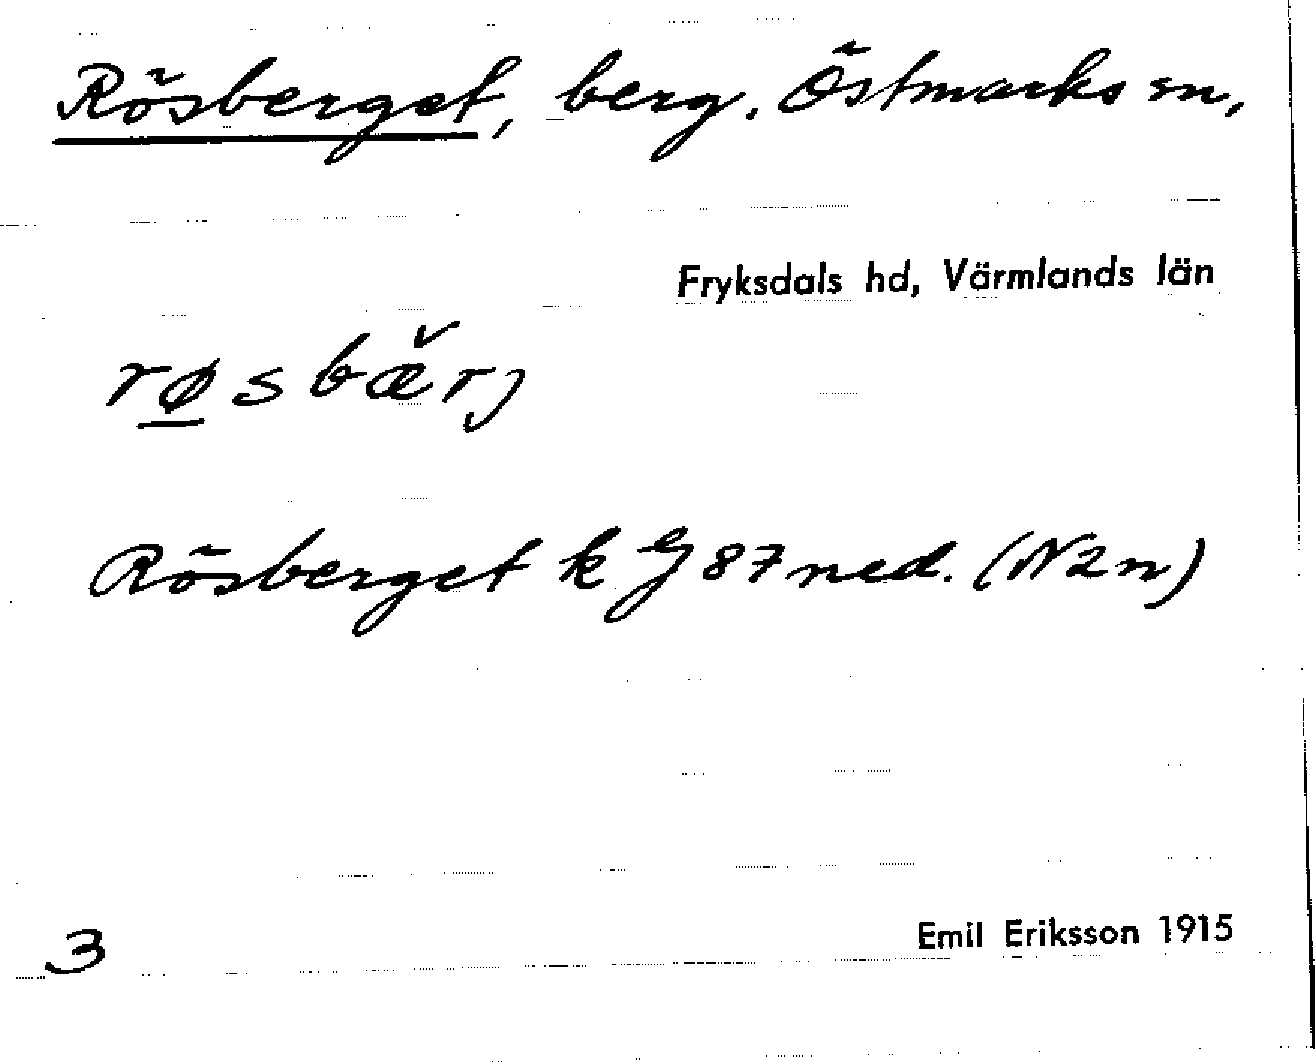 Rösberget, berg. Östmarks sn,
Fryksdals hd, Värmlands län
rø̲sbæ̆rj
Rösberget k G 87 ned. (N2n)
3
Emil Eriksson 1915